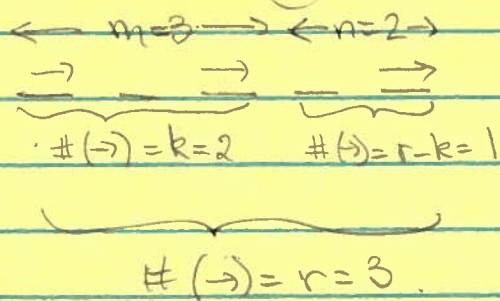 ← m=3 → ← n=2 →
→ → →
#(→) = k = 2 #(→) = r-k = 1
#(→) = r = 3.